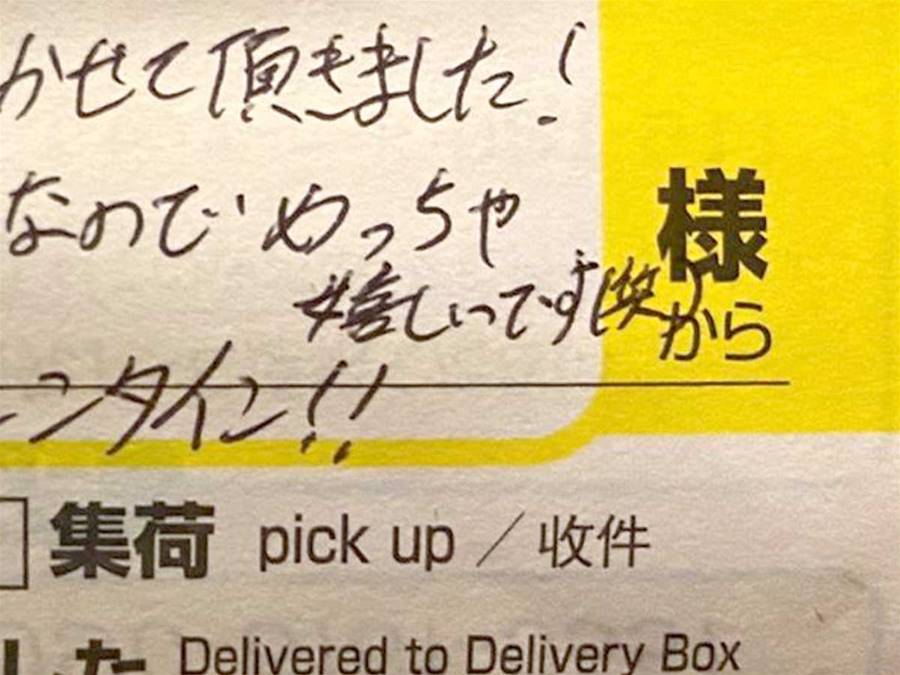 かせて頂きました!
なのでめっちゃ
嬉しいです(笑)
ンタイン!!
様
から
集荷 pick up / 收件
した Delivered to Delivery Box